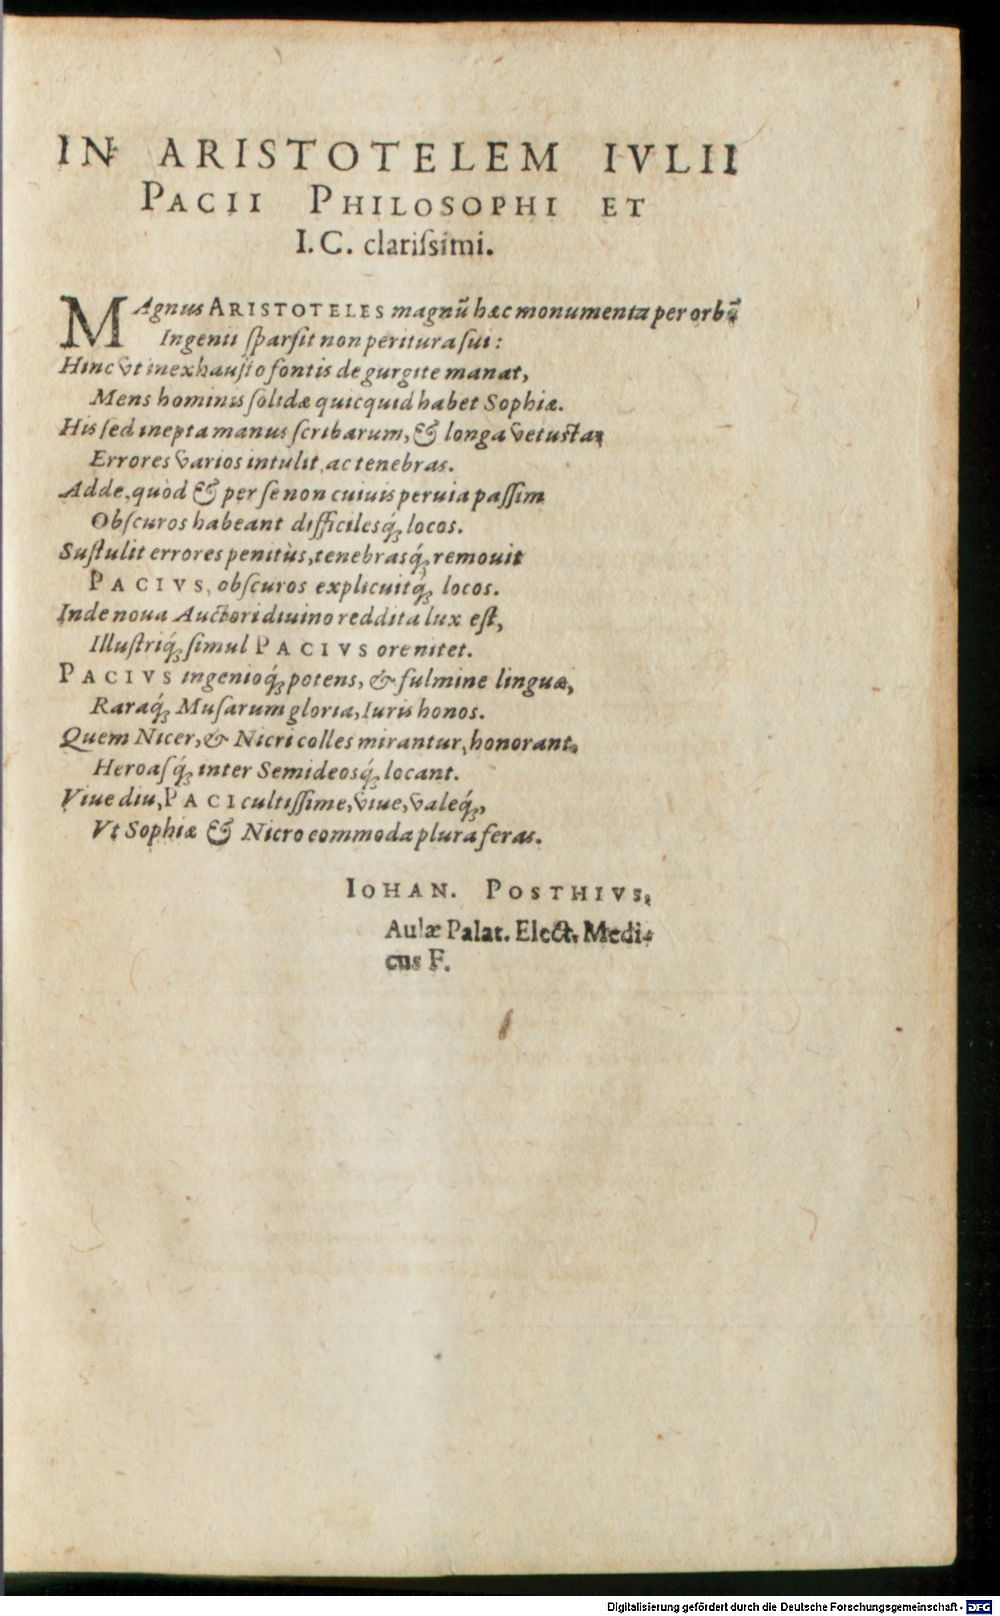 IN ARISTOTELEM IVLII
PACII PHILOSOPHI ET
I. C. clariſsimi.
MAgnus ARISTOTELES magnũ hæc monumenta per orbẽ
Ingenii ſparſit non peritura ſui:
Hinc vt inexhauſto fontis de gurgite manat,
Mens hominis ſolidæ quicquid habet Sophiæ.
His ſed inepta manus ſcribarum, & longa vetustas
Errores varios intulit, ac tenebras.
Adde, quòd & per ſe non cuiuis peruia paſſim
Obſcuros habeant difficilesq́; locos.
Suſtulit errores penitùs, tenebrasq́; remouit
PACIVS, obſcuros explicuitq́; locos.
Inde noua Auctori diuino reddita lux eſt,
Illuſtriq́; ſimul PACIVS ore nitet.
PACIVS ingenioq́; potens, & fulmine linguæ,
Raraq́; Muſarum gloria, Iuris honos.
Quem Nicer, & Nicri colles mirantur, honorant,
Heroaſq́; inter Semideosq́; locant.
Viue diu, PACI cultiſſime, viue, valeq́;,
Vt Sophiæ & Nicro commoda plura feras.
IOHAN. POSTHIVS,
Aulæ Palat. Elect. Medi-
cus F.
Digitalisierung gefördert durch die Deutsche Forschungsgemeinschaft - DFG